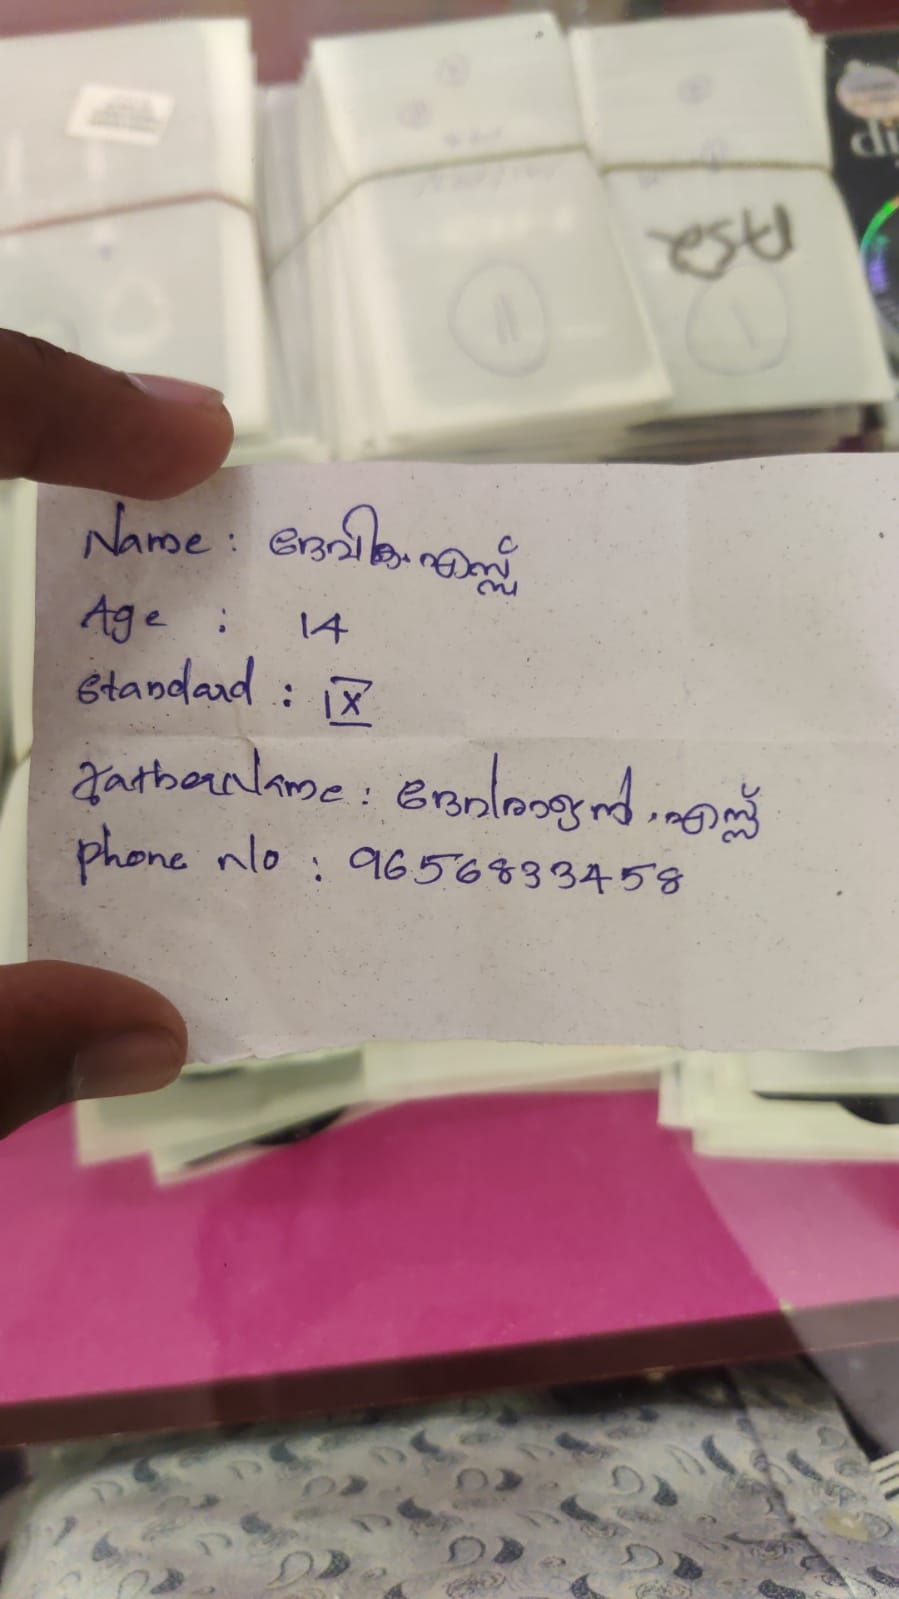 Name : ദേവിക.എസ്സ്
Age : 14
standard : IX
FatherName : ദേവരാജൻ.എസ്സ്
phone No : 9656833458